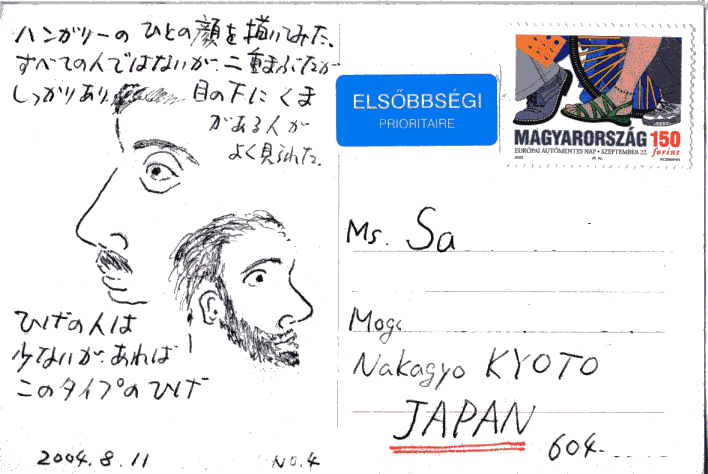 ハンガリーの ひとの顔を描いてみた。
すべての人ではないが、二重まぶたが
しっかりあり 目の下に くま
がある人が
よく見られた。
ひげの人は
少ないが、あれば
このタイプのひげ
2004.8.11 No.4
ELSŐBBSÉGI
PRIORITAIRE
MAGYARORSZÁG 150
EURÓPAI AUTÓMENTES NAP • SZEPTEMBER 22. forint
Ms. Sa
Nakagyo KYOTO
JAPAN
604-